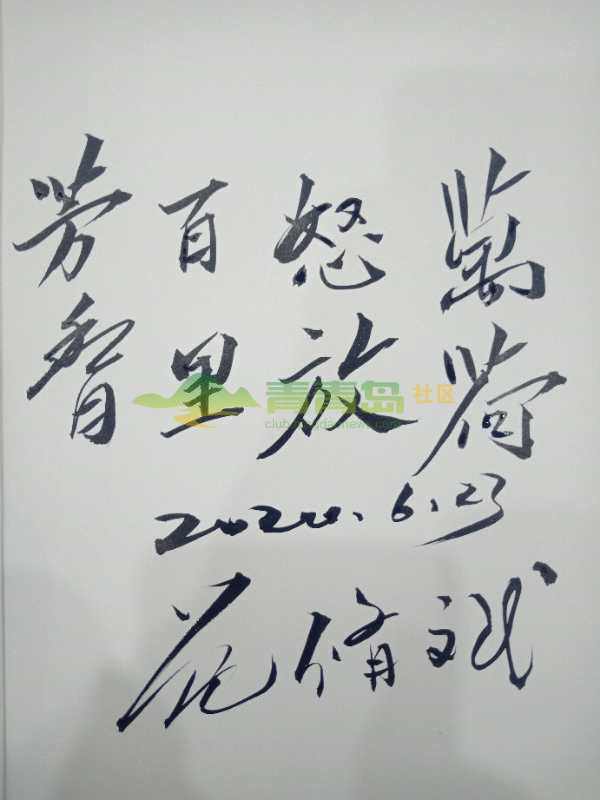 萬荷
怒放
百里
芳香
2020.6.23
花脩斌
青青岛社区
club.qingdaonews.com